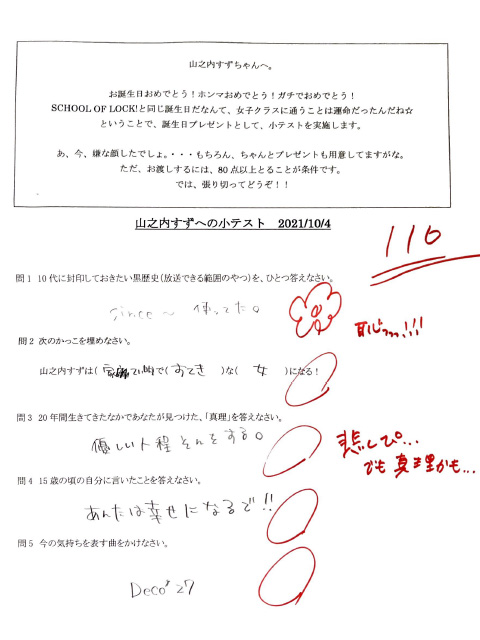 山之内すずちゃんへ。
お誕生日おめでとう！ホンマおめでとう！ガチでおめでとう！
SCHOOL OF LOCK!と同じ誕生日だなんて、女子クラスに通うことは運命だったんだね☆
ということで、誕生日プレゼントとして、小テストを実施します。
あ、今、嫌な顔したでしょ。・・・もちろん、ちゃんとプレゼントも用意してますがな。
ただ、お渡しするには、80点以上とることが条件です。
では、張り切ってどうぞ！！
山之内すずへの小テスト 2021/10/4
110
問1 10代に封印しておきたい黒歴史（放送できる範囲のやつ）を、ひとつ答えなさい。
since～ 使ってた。
恥っっ…!!!
問2 次のかっこを埋めなさい。
山之内すずは（ で（ すてき ）な（ 女 ）になる！
問3 20年間生きてきたなかであなたが見つけた、「真理」を答えなさい。
優しい人程そんをする。
悲しぴ…
でも真理かも…
問4 15歳の頃の自分に言いたことを答えなさい。
あんたは幸せになるで!!
問5 今の気持ちを表す曲をかけなさい。
Deco*27